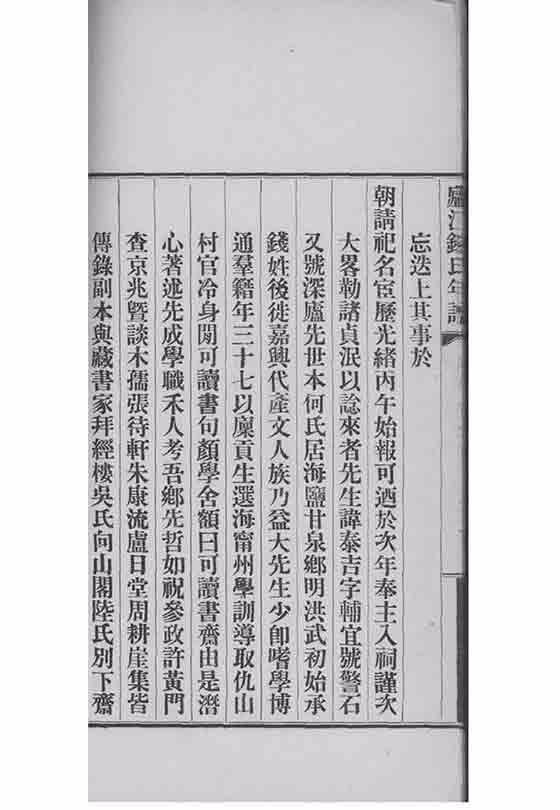 廬江錢氏年譜
忘迭上其事於
朝請祀名宦歷光緒丙午始報可迺於次年奉主入祠謹次
大畧勒諸貞泯以諗來者先生諱泰吉字輔宜號警石
又號深廬先世本何氏居海鹽甘泉鄉明洪武初始承
錢姓後徙嘉興代產文人族乃益大先生少卽嗜學博
通羣籍年三十七以廩貢生選海甯州學訓導取仇山
村官冷身閒可讀書句顏學舍額曰可讀書齋由是潛
心著述先成學職禾人考吾鄉先哲如祝參政許黃門
查京兆曁談木孺張待軒朱康流盧日堂周耕崖集皆
傳錄副本與藏書家拜經樓吳氏向山閣陸氏別下齋